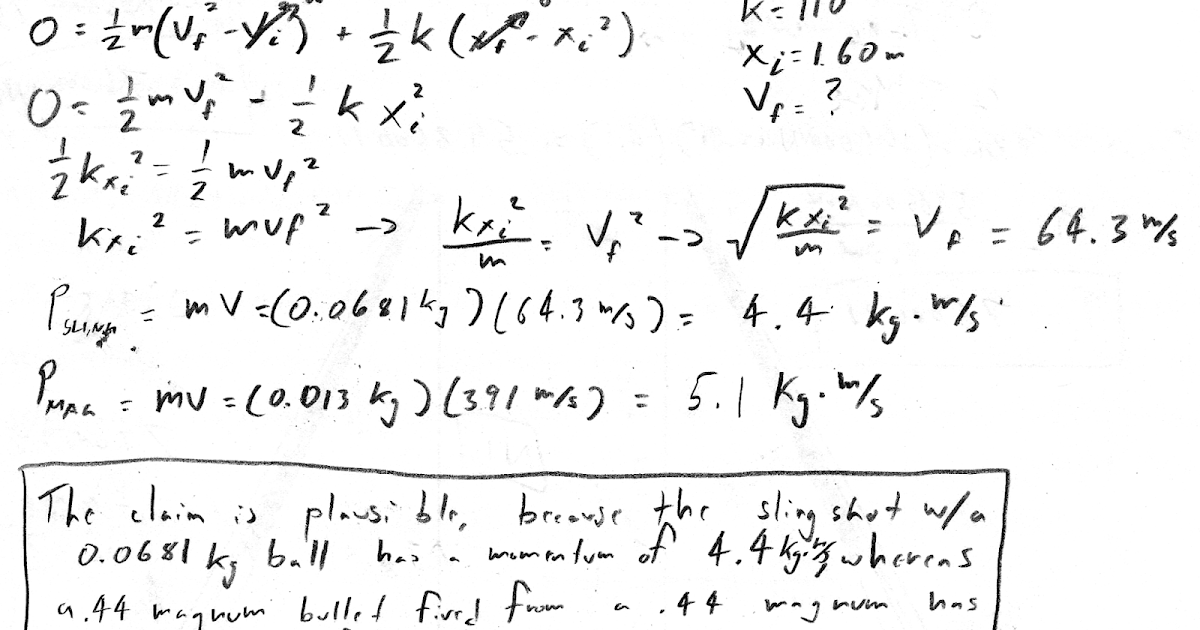 0 = ½m(Vf² - Vi²) + ½k(xf² - xi²)
k = 110
xi = 1.60 m
Vf = ?
0 = ½mVf² - ½kxi²
½kxi² = ½mVf²
kxi² = mvf² -> kxi²/m = Vf² -> √(kxi²/m) = Vf = 64.3 m/s
PSLING = mV = (0.0681 kg)(64.3 m/s) = 4.4 kg·m/s
PMAG = mV = (0.013 kg)(391 m/s) = 5.1 kg·m/s
The claim is plausible, because the sling shot w/a
0.0681 kg ball has a momentum of 4.4 kg·m/s whereas
a .44 magnum bullet fired from a .44 magnum has